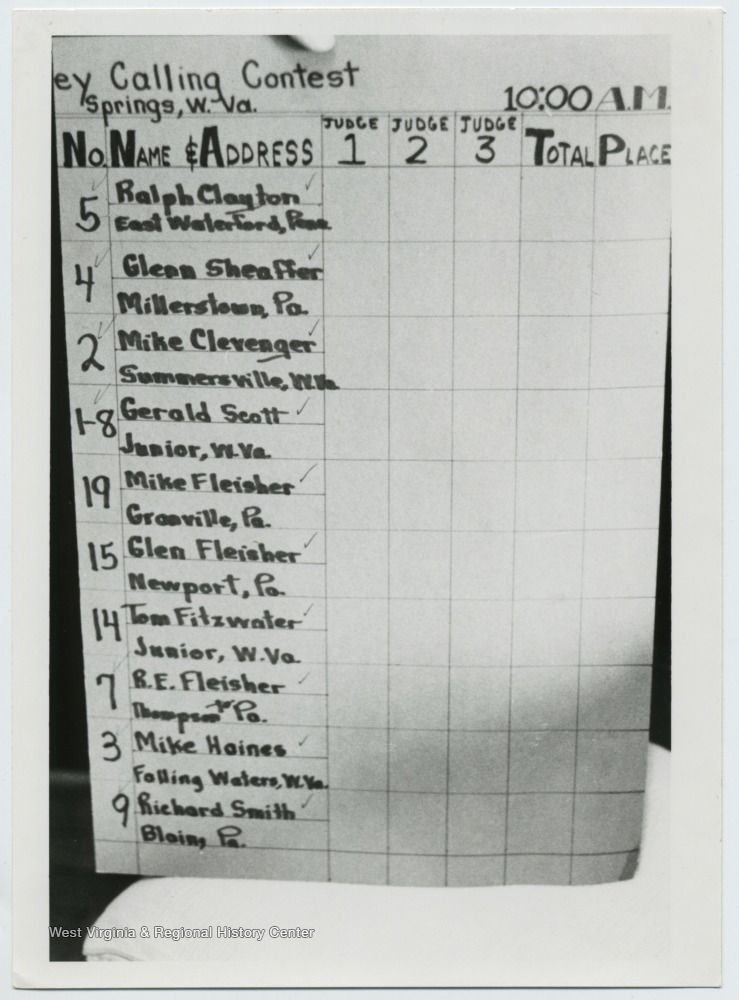 ey Calling Contest
Springs, W. Va.
10:00 A.M.
No. Name & Address Judge 1 Judge 2 Judge 3 Total Place
5 Ralph Clayton
East Waterford, Penna
4 Glenn Sheaffer
Millerstown, Pa.
2 Mike Clevenger
Summersville, W.Va.
1-8 Gerald Scott
Junior, W.Va.
19 Mike Fleisher
Granville, Pa.
15 Glen Fleisher
Newport, Pa.
14 Tom Fitzwater
Junior, W.Va.
7 R.E. Fleisher
Pa.
3 Mike Haines
Falling Waters, W.Va.
9 Richard Smith
Blain, Pa.
West Virginia & Regional History Center